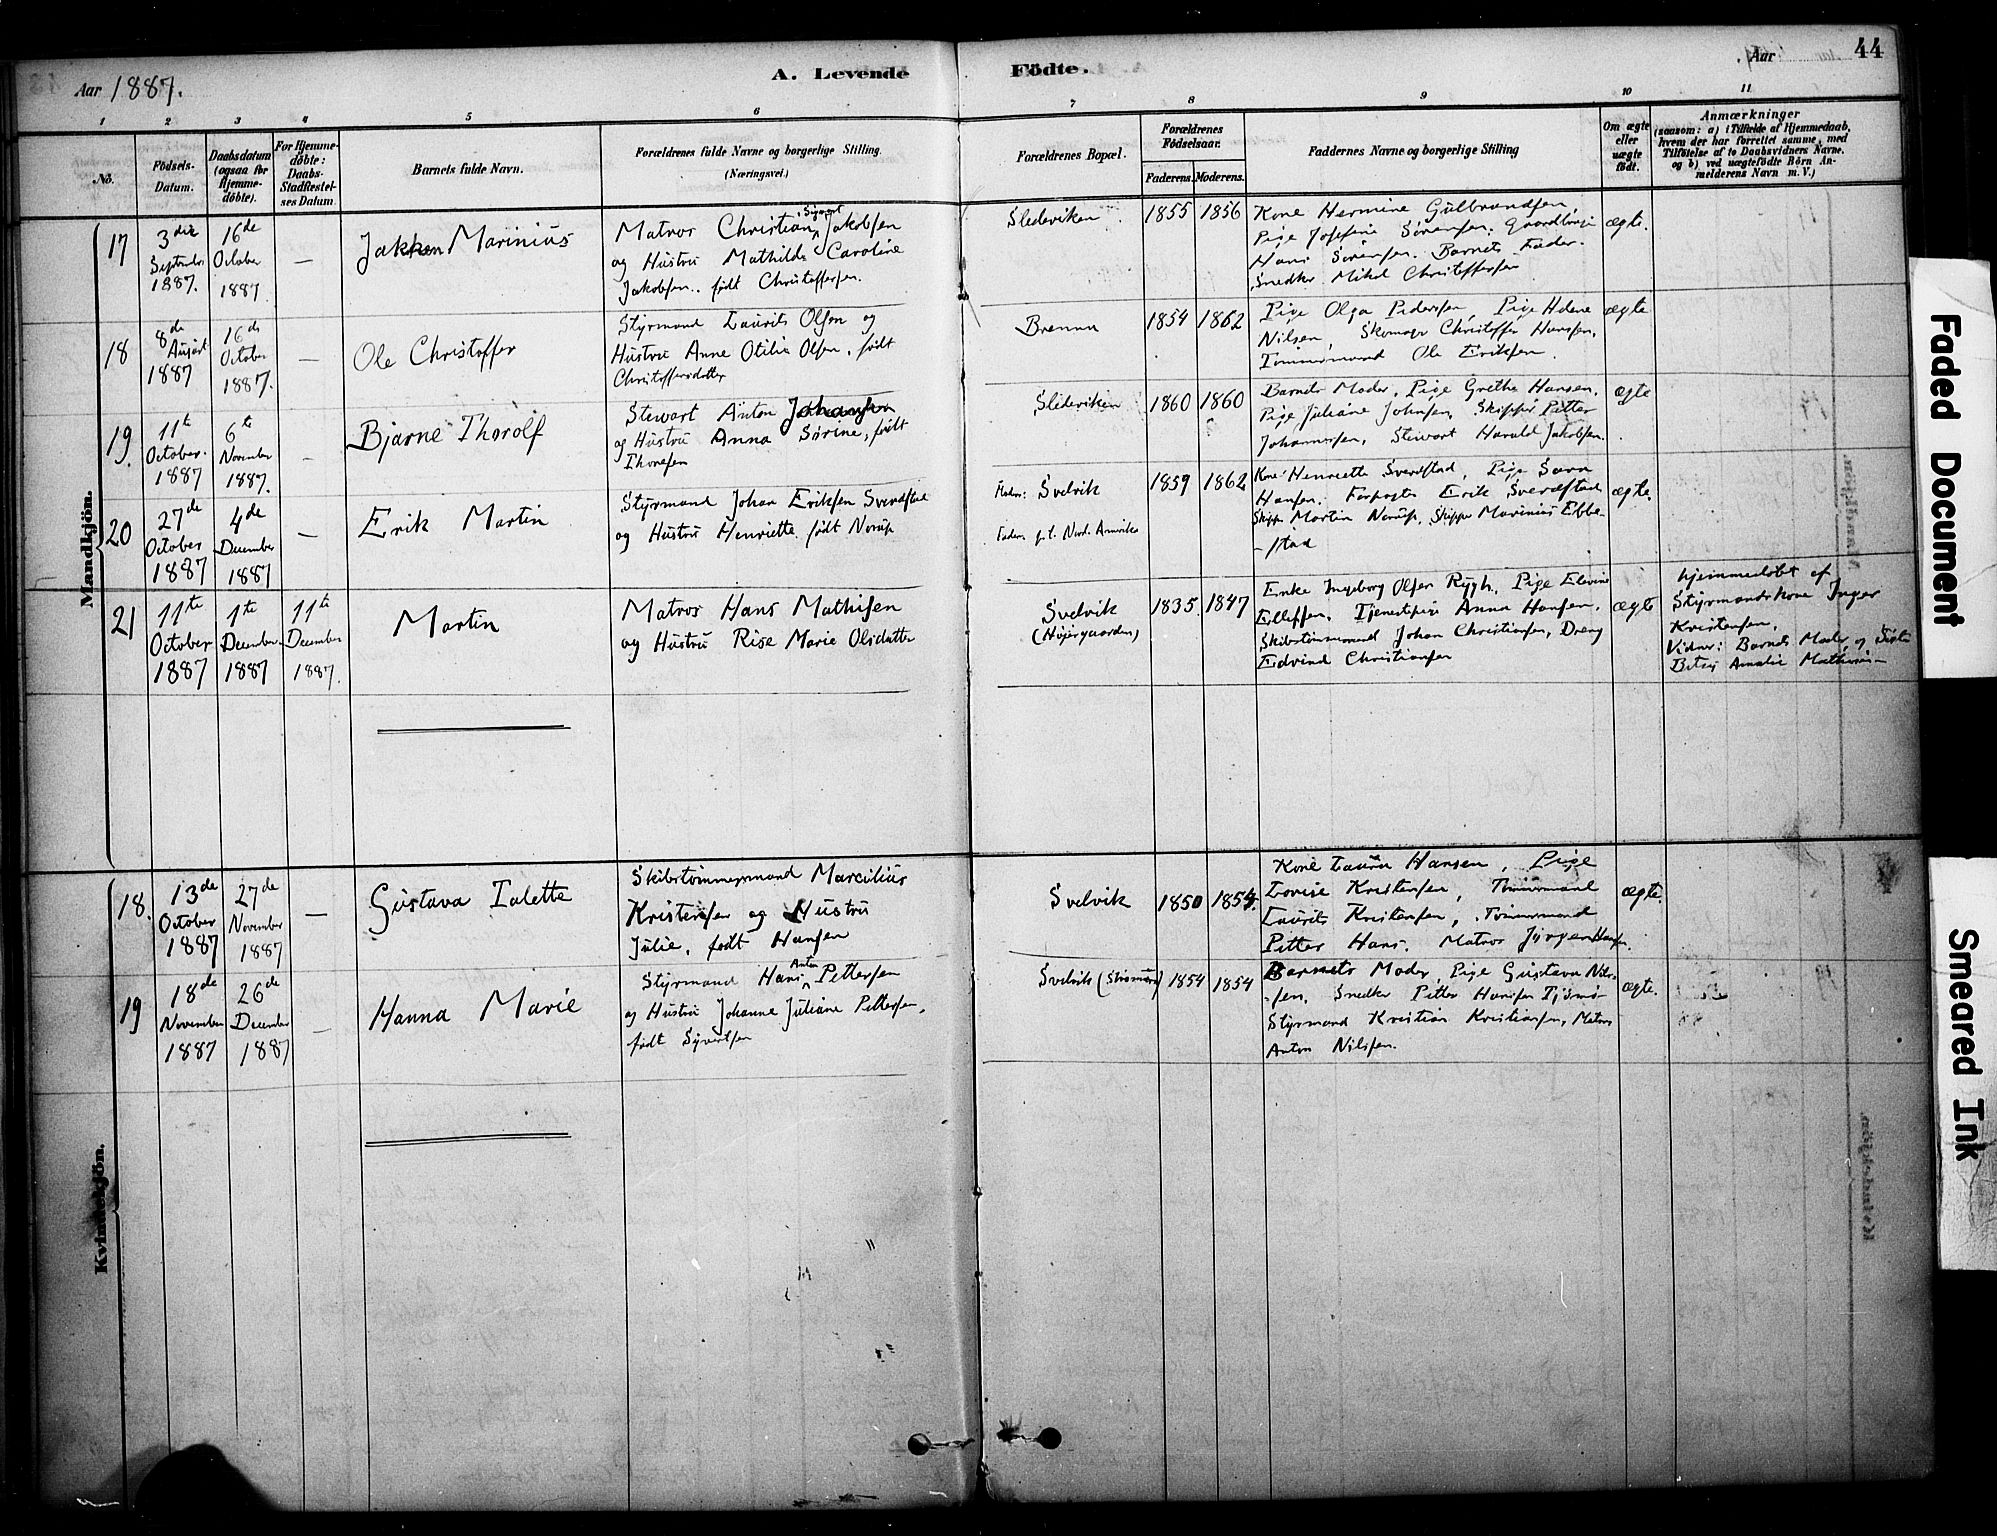 Aar 1887.
A. Levende Fødte.
Aar
44
1 2 3 4 5 6 7 8 9 10 11
No.
Fødsels-Datum.
Daabsdatum (ogsaa for Hjemme-døbte).
For Hjemme-døbte: Daabs-Stadfæstel-ses Datum.
Barnets fulde Navn.
Forældrenes fulde Navne og borgerlige Stilling.
(Næringsvei.)
Forældrenes Bopæl.
Forældrenes Fødselsaar.
Faderens. Moderens.
Faddernes Navne og borgerlige Stilling
Om ægte eller uægte født.
Anmærkninger
(saasom: a) i Tilfælde af Hjemmedaab,
hvem der har forrettet samme, med
Tilføielse af to Daabsvidners Navne.
og b) ved uægtefødte Børn An-
melderens Navn m. V.)
Mandkjön.
17
3die September 1887.
16de October 1887
—
Jakken Marinius
Matros Christian Sigvart Jakobsen
og Hustru Mathilde Caroline
Jakobsen. født Christoffersen.
Sledeviken
1855 1856
Kone Hermine Gulbrandsen,
Pige Josefine Sørensen,
Hans Sørensen. Barnets Fader.
Snedker Mikal Christoffersen
ægte.
18
8de August 1887
16de October 1887.
—
Ole Christoffer
Styrmand Laurits Olsen og
Hustru Anne Otilia Olsen, født
Christoffersdatter
Brenna
1854 1862
Pige Olga Pedersen, Pige Helene
Nilsen, Skomager Christoffer Hansen,
Tømmermand Ole Eriksen.
ægte
19.
11te October. 1887
6te November 1887.
—
Bjarne Thorolf
Stewart Anton Johansen
og Hustru Anna Sørine, født
Thoresen
Sledeviken
1860 1860
Barnets Moder, Pige Grethe Hansen,
Pige Juliane Johnsen, Skipper Petter
Johannesen, Stewart Harald Jakobsen.
ægte
20
27de October 1887
4de December 1887
—
Erik Martin
Styrmand Johan Eriksen Sverdstad
og Hustru Henriette født Nerup
Svelvik
Faderen p.t. Nord. Amerika
1859 1862
Kone Henriette Sverdstad, Pige Sara
Hansen, Erik Sverdstad
Skipper Martin Nerup, Skipper Marinius Ebbe-
-stad
ægte.
21
11te October 1887
1te December 1887
11te December 1887.
Martin
Matros Hans Mathisen
og Hustru Rise Marie Olsdatter
Svelvik
(Høiergaarden)
1835. 1847
Enke Ingeborg Olsen Rygh, Pige Elevine
Ellefsen, Tjenestepige Anna Hansen,
Skibstømmermand Johan Christiansen, Dreng
Edvind Christiansen
ægte
hjemmedøbt af
Styrmandskone Inger
Kristensen,
Vidner: Barnets Moder og Søster
Betsy Amalie
Kvindekjön.
18.
13de October 1887
27de November 1887
—
Gustava Ialette
Skibstømmermand Marcilius
Kristensen og Hustru
Julie, født Hansen
Svelvik
1850 1854.
Kone Laura Hansen, Pige
Lovise Kristensen, Tømmermand
Laurits Kristensen, Tømmermand
Petter Hans. Matros Jørgen Hansen.
ægte.
19
18de November 1887
26de December 1887
—
Hanna Marie
Styrmand Hans Anton Pettersen
og Hustru Johanne Juliane Pettersen,
født Syvertsen
Svelvik
1854 1854
Barnets Moder, Pige Gustava Nils-
-sen, Snedker Petter Hansen Tjømø
Styrmand Kristian Kristiansen, Matros
Anton Nilssen.
ægte.
Faded Document
Smeared Ink